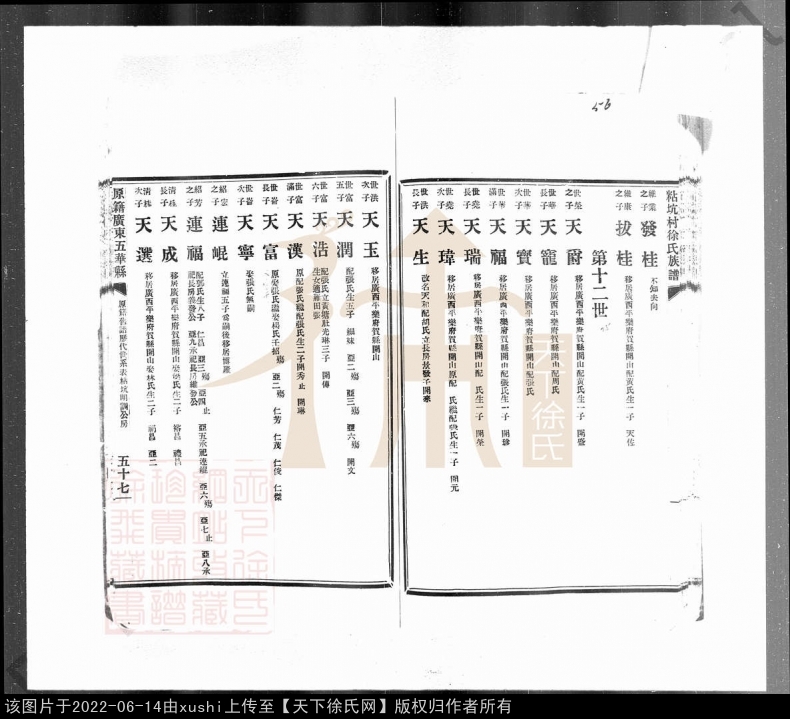 56
粘坑村徐氏族譜
繼業之子 發桂 不知去向
繼康之子 拔桂 移居廣西平樂府賀縣開山配黃氏生一子 天佐
第十二世
世榮之子 天爵 移居廣西平樂府賀縣開山配黃氏生一子 開盛
世華長子 天寵 移居廣西平樂府賀縣開山配周氏
世華次子 天寶 移居廣西平樂府賀縣開山配張氏
世華四子 天福 移居廣西平樂府賀縣開山配張氏生一子 開珍
世堯長子 天瑞 移居廣西平樂府賀縣開山配 氏生一子 開榮
世堯次子 天瑋 移居廣西平樂府賀縣開山原配 氏繼配張氏生一子 開元
世洪長子 天生 改名天和配胡氏立長房景發子開寒
世洪次子 天玉 移居廣西平樂府賀縣開山
世富五子 天潤 配張氏生五子 細妹 亞二殤 亞三殤 亞六殤 開文
世富六子 天浩 配張氏立黃塘肚光琳三子 開傳
生女適雁田張
世富滿子 天漢 原配張氏繼配張氏生二子開秀止 開琳
世裔長子 天富 原娶張氏繼娶楊氏壬招殤 亞二殤 仁芳 仁茂 仁俊 仁傑
世裔次子 天寧 娶張氏無嗣
紹宏之子 連崐 立連福五子為嗣後移居博羅
紹芳之子 連福 配鄧氏生八子 仁昌 亞三殤 亞四止 亞五承祀連崐 亞六殤 亞七止 亞八承
祀長房義發公 亞九承祀長房維發公
清秩長子 天成 移居廣西平樂府賀縣開山娶吳氏生二子 裕昌 禮昌
清秩次子 天選 移居廣西平樂府賀縣開山娶妹氏生二子 福昌 亞二
原籍廣東五華縣
原籍舊譜歷代世系表粘坑明調公房
五十七
天下徐氏
天下徐氏網站首藏
珍貴族譜
徐飛藏書
该图片于2022-06-14由xushi上传至【天下徐氏网】版权归作者所有